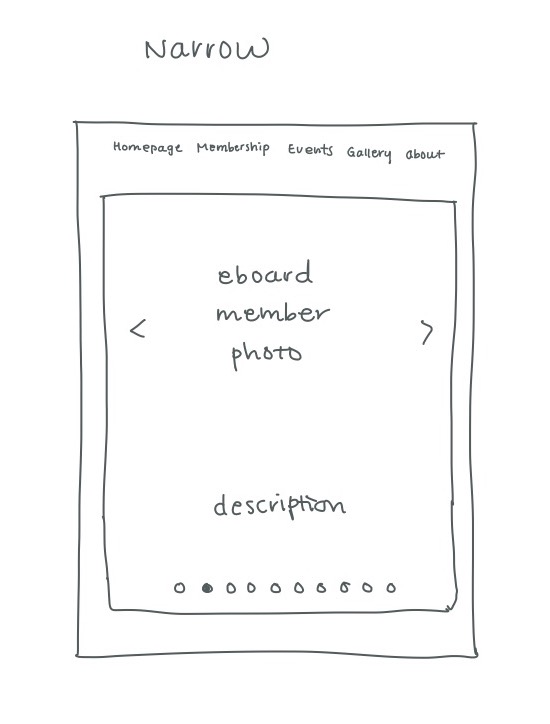 Narrow
Homepage Membership Events Gallery about
eboard
member
< >
photo
description